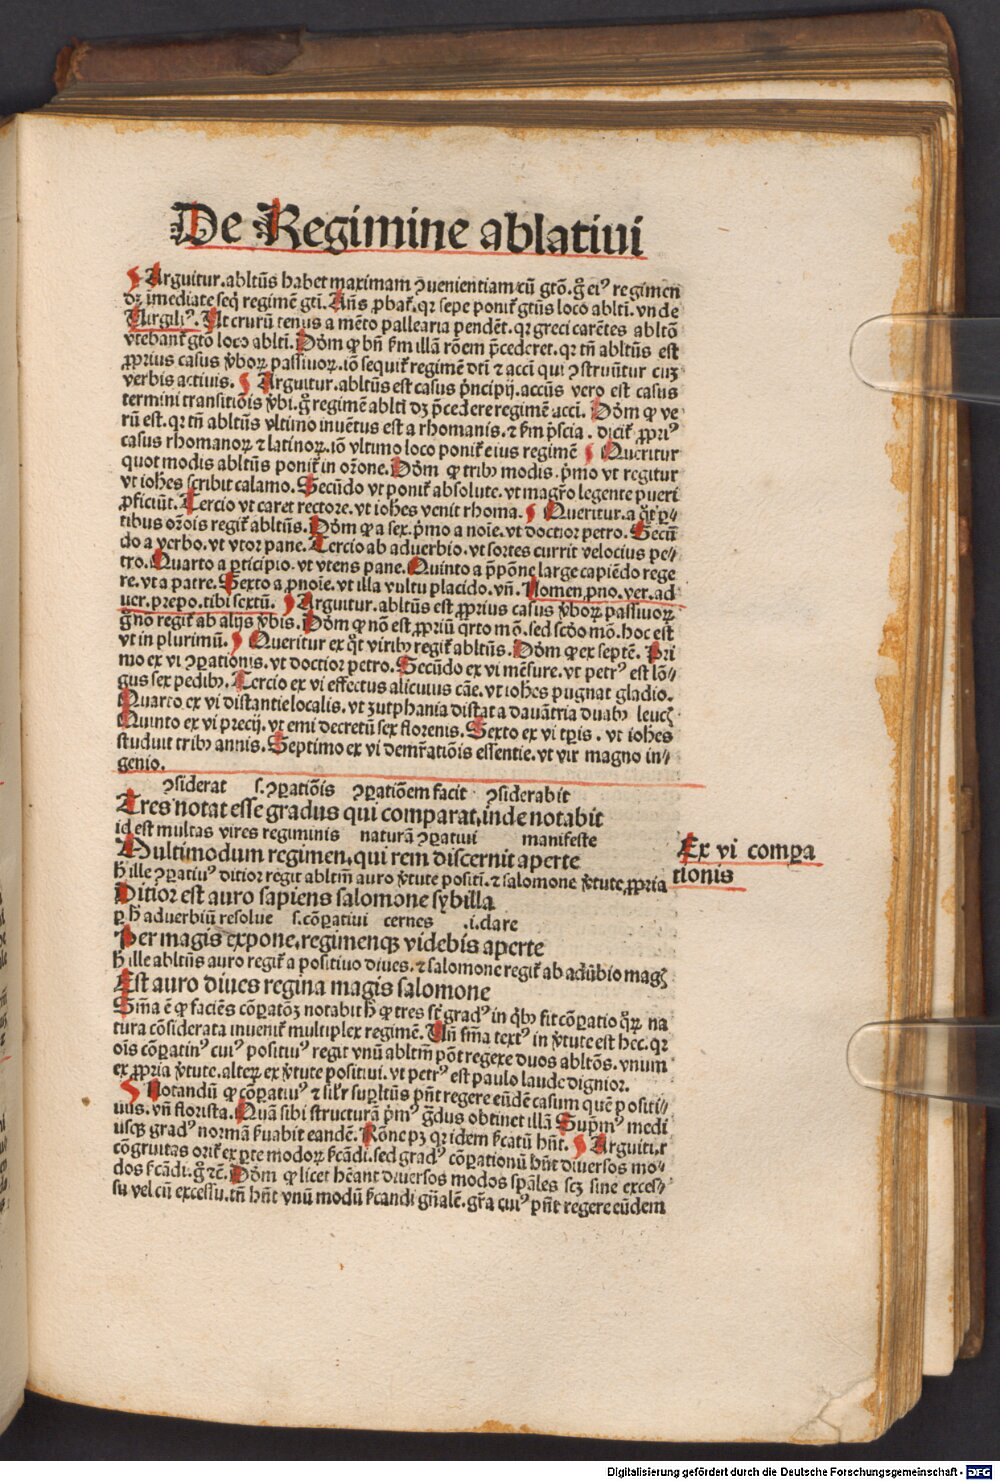 De Regimine ablatiui
Arguitur.abltũs habet maximam ↄuenientiam cũ gtõ.gͦ eiꝰ regimen
dꝫ īmediate seq̄ regimē gtī. Añs ꝓbaꝉ.qꝛ sepe poniꝉ gtũs loco abltī.vnde
Uirgiliꝰ. Ut crurũ tenus a mẽto pallearia pendẽt.qꝛ greci carẽtes abltõ
vtebanꝉ gtõ loco abltī. Dōm ꝙ bñ ẜm illã rõem p̄cederet.qꝛ tñ abltũs est
ꝓprius casus v̄boꝝ passiuoꝝ.iõ sequiꝉ regimẽ dtī ⁊ accī qui ↄstruũtur cuꝫ
verbis actiuis. Arguitur.abltũs est casus p̄ncipij.accũs vero est casus
termini transitiõis v̄bi.gͦ regimẽ abltī dꝫ p̄cedere regimẽ accī. Dōm ꝙ ve
rũ est.qꝛ tñ abltũs vltimo inuẽtus est a rhomanis.⁊ ẜm p̄scia.diciꝉ ꝓpriꝰ
casus rhomanoꝝ ⁊ latinoꝝ.iõ vltimo loco poniꝉ eius regimẽ Queritur
quot modis abltũs poniꝉ in oꝛone. Dōm ꝙ tribꝰ modis.p̄mo vt regitur
vt iohẽs scribit calamo. Secũdo vt poniꝉ absolute.vt magr̄o legente pueri
ꝓficiũt. Tercio vt caret rectore.vt iohẽs venit rhoma. Queritur.a q̄t ꝑ⸗
tibus oꝛõis regiꝉ abltũs. Dōm ꝙ a sex.p̄mo a noīe.vt doctior petro. Secũ
do a verbo.vt vtor pane. Tercio ab aduerbio.vt sortes currit velocius pe⸗
tro. Quarto a ꝑticipio.vt vtens pane. Quinto a p̄põne large capiẽdo rege
re.vt a patre. Sexto a ꝓnoīe.vt illa vultu placido.vñ. Nomen.pno.ver.ad
uer.prepo.tibi sextũ. Arguitur.abltũs est ꝓprius casus v̄boꝝ passiuoꝝ
gͦ nõ regiꝉ ab alijs v̄bis. Dōm ꝙ nõ est ꝓpriũ q̄rto mõ.sed scdo mõ.hoc est
vt in plurimũ. Queritur ex q̄t viribꝰ regiꝉ abltũs. Dōm ꝙ ex septẽ. Pri
mo ex vi ↄꝑationis.vt doctior petro. Secũdo ex vi mẽsure.vt petrꝰ est lõ⸗
gus sex pedibꝰ. Tercio ex vi effectus alicuius cãe.vt iohẽs pugnat gladio.
Quarto ex vi distantie localis.vt zutphania distat a dauãtria duabꝰ leucꝭ
Quinto ex vi precij.vt emi decretũ sex florenis. Sexto ex vi tp̄is.vt iohẽs
studuit tribꝰ annis. Septimo ex vi demr̄atiõis essentie.vt vir magno in⸗
genio.
ↄsiderat s.ↄꝑatiõis ↄꝑatiõem facit ↄsiderabit
Tres notat esse gradus qui comparat,inde notabit
id est multas vires regiminis naturã ↄꝑatiui manifeste
Multimodum regimen,qui rem discernit aperte
h̄ ille ↄꝑatiuꝰ ditior regit abltm̄ auro v̄tute positī.⁊ salomone v̄tute ꝓpria
Ex vi compa
tionis
Ditior est auro sapiens salomone sybilla
ꝑ h̄ aduerbiũ resolue s.cõꝑatiui cernes .i.clare
Per magis expone,regimenqꝫ videbis aperte
h̄ ille abltũs auro regiꝉ a positiuo diues.⁊ salomone regiꝉ ab adũbio magꝭ
Est auro diues regina magis salomone
Sm̄a ẽ ꝙ faciẽs cõꝑatõꝫ notabit h̄ ꝙ tres st̄ gradꝰ in q̄bꝰ fit cõꝑatio qͦꝝ na
tura cõsiderata inueniꝉ multiplex regimẽ. Uñ sm̄a textꝰ in v̄tute est hec.qꝛ
oīs cõꝑatiuꝰ cuiꝰ positiuꝰ regit vnũ abltm̄ põt regere duos abltõs.vnum
ex ꝓpria v̄tute.alteꝝ ex v̄tute positiui.vt petrꝰ est paulo laude dignior.
Notandũ ꝙ cõꝑatiuꝰ ⁊ silr̄ suꝑltũs pñt regere eũdẽ casum quẽ positi⸗
uus.vñ florista. Quã sibi structurã p̄mꝰ gͣdus obtinet illã Sup̄mꝰ medi
usqꝫ gradꝰ normã ẜuabit eandẽ. Rõne pꝫ qꝛ idem ẜcatũ hñt. Arguitur
cõgruitas oriꝉ ex ꝑte modoꝝ ẜcãdi.sed gradꝰ cõꝑationũ hñt diuersos mo⸗
dos ẜcãdi.gͦ rc̄. Dōm ꝙ licet hẽant diuersos modos sp̄ales scꝫ sine exces⸗
su vel cũ excessu.tñ hñt vnũ modũ ẜcandi gñalẽ.gr̄a cuiꝰ pñt regere eũdem
Digitalisierung gefördert durch die Deutsche Forschungsgemeinschaft - DFG